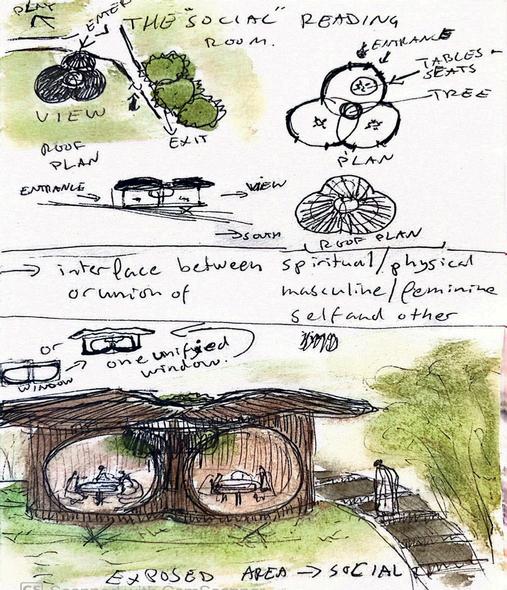 PLAY
ENTER
THE "SOCIAL" READING
ROOM.
ENTRANCE
TABLES +
SEATS
TREE
VIEW
EXIT
PLAN
ROOF
PLAN
ENTRANCE
VIEW
SOUTH
ROOF PLAN
→ interface between spiritual/physical
or union of masculine/feminine
self and other
or
one unified
window.
WINDOW
EXPOSED AREA → SOCIAL